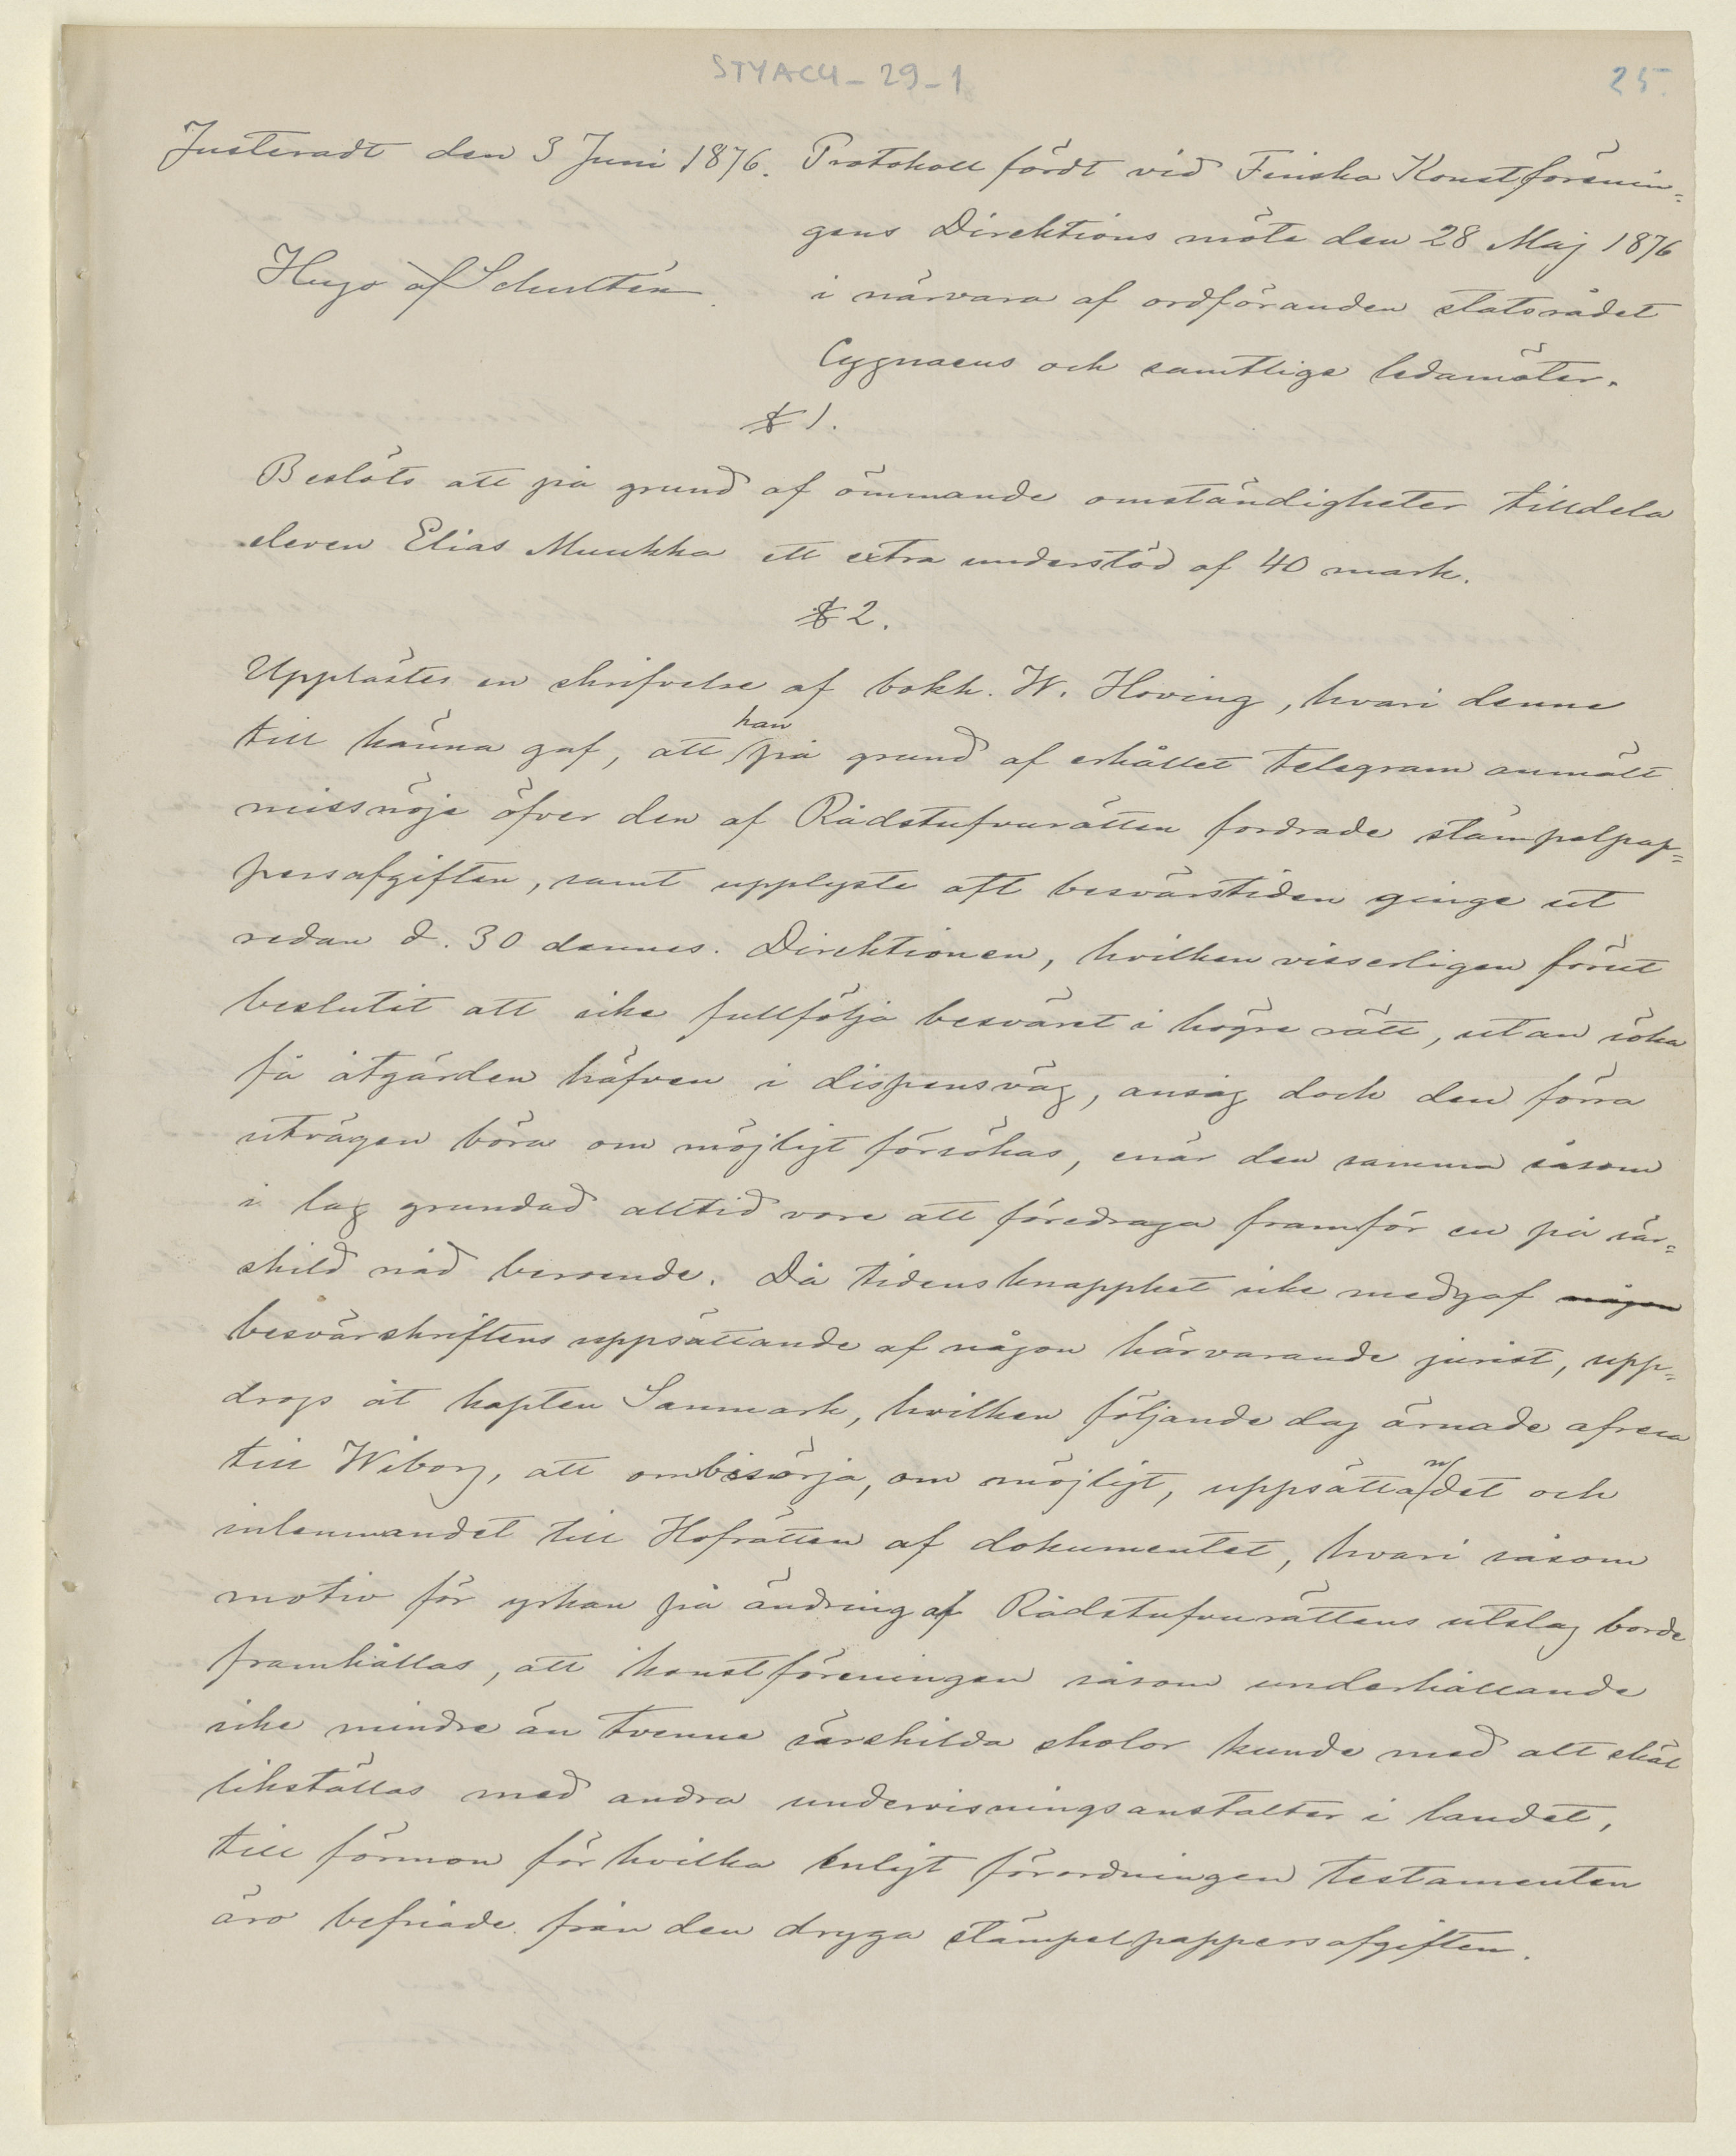 STYACU-29-1
25.
Justeradt den 3 Juni 1876.
Hugo af Schultén.
Protokoll fördt vid Finska Konstförenin=
gens Direktions möte den 28 Maj 1876
i närvara af ordföranden statsrådet
Cygnaeus och samtliga ledamöter.
§ 1.
Beslöts att på grund af ömmande omständigheter tilldela
eleven Elias Muukka ett extra understöd af 40 mark.
§ 2.
Upplästes en skrifvelse af bokh. W. Hoving, hvari denne
till känna gaf, att han på grund af erhållet telegram anmält
missnöje öfver den af Rådstufvurätten fordrade stämpelpap=
persafgiften, samt upplyste att besvärstiden ginge ut
redan d. 30 dennes. Direktionen, hvilken visserligen förut
beslutit att icke fullfölja besväret i högre rätt, utan söka
få åtgärden häfven i dispensväg, ansåg dock den förra
utvägen böra om möjligt försökas, enär den samma såsom
i lag grundad alltid vore att föredraga framför en på sär=
skild nåd beroende. Då tidens knapphet icke medgaf någon
besvärskriftens uppsättande af någon härvarande jurist, upp=
drogs åt kapten Sanmark, hvilken följande dag ärnade afresa
till Wiborg, att ombesörja, om möjligt, uppsättandet och
inlemnandet till Hofrätten af dokumentet, hvari såsom
motiv för yrkan på ändring af Rådstufvurättens utslag borde
framhållas, att konstföreningen såsom underhållande
icke mindre än tvenne särskilda skolor kunde med allt skäl
likställas med andra undervisningsanstalter i landet,
till förmon för hvilka enligt förordningen testamenten
äro befriade från den dryga stämpelpappersafgiften.